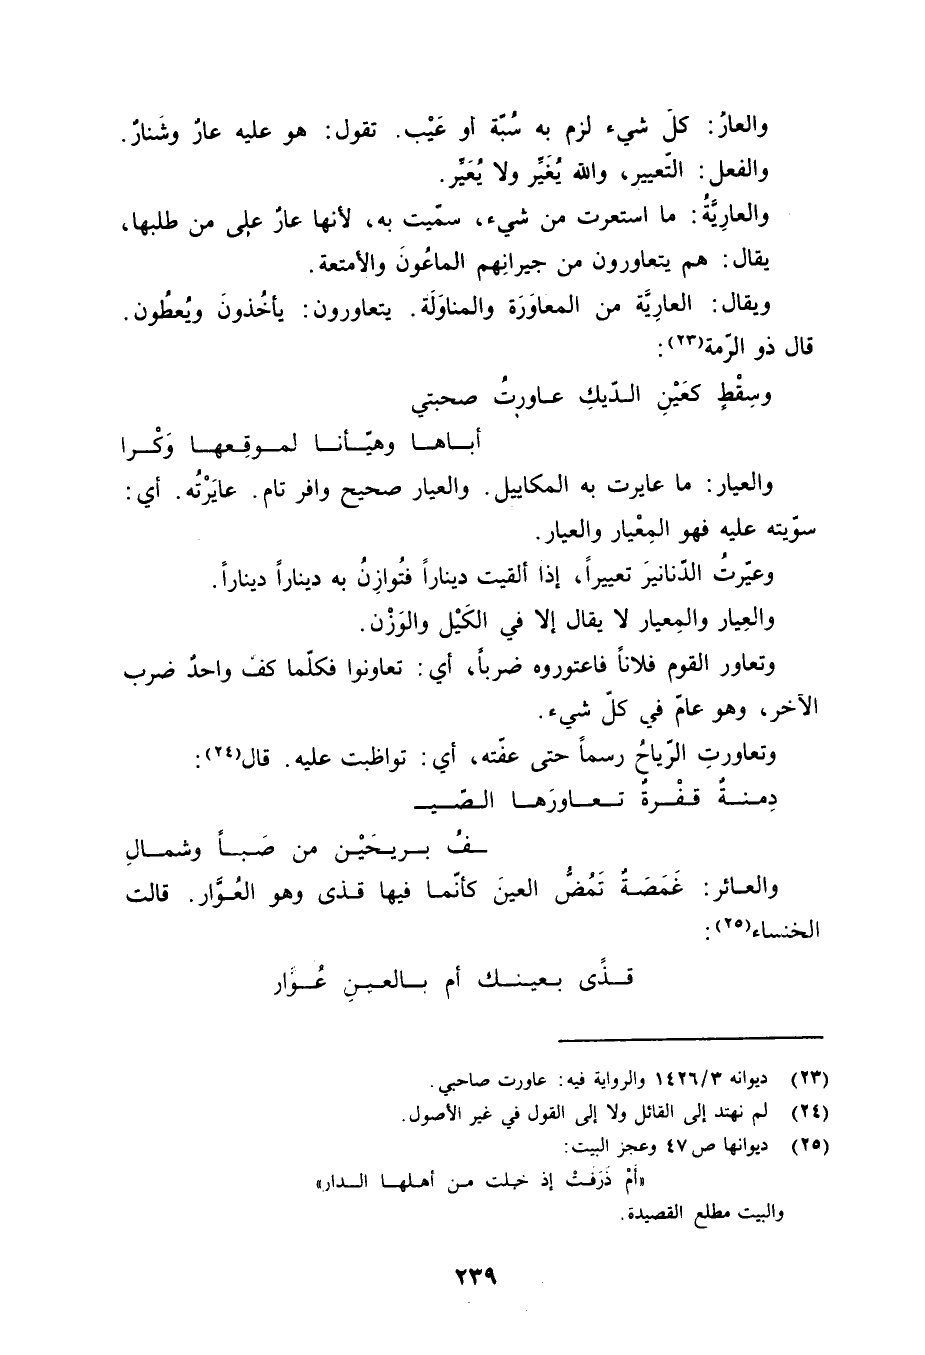 والعارُ: كلّ شيء لزم به سُبّة أو عَيْب. تقول: هو عليه عارٌ وشَنارٌ.
والفعل: التّعيير، والله يُغَيِّر ولا يُعَيِّر.
والعارِيَّةُ: ما استعرت من شيء، سمّيت به، لأنها عارٌ على من طلبها،
يقال: هم يتعاورون من جيرانِهم الماعُونَ والأمتعة.
ويقال: العارِيَّة من المعاوَرَة والمناوَلَة. يتعاورون: يأخُذونَ ويُعطُون.
قال ذو الرّمة(٢٣):
وسِقْطٍ كعَيْنِ الدّيكِ عاورتُ صحبتي
أباها وهيّأنا لموقِعها وَكْرا
والعيار: ما عايرت به المكاييل. والعيار صحيح وافر تام. عايَرْتُه. أي:
سوّيته عليه فهو المِعْيار والعيار.
وعيّرتُ الدّنانيرَ تعييراً، إذا ألقيت ديناراً فتُوازِنُ به ديناراً ديناراً.
والعِيار والمِعيار لا يقال إلا في الكَيْل والوَزْن.
وتعاور القوم فلاناً فاعتوروه ضرباً، أي: تعاونوا فكلّما كفّ واحدٌ ضرب
الآخر، وهو عامّ في كلّ شيء.
وتعاورتِ الرّياحُ رسماً حتى عفّته، أي: تواظبت عليه. قال(٢٤):
دِمنةٌ قفْرةٌ تعاورَها الصّيـ
ـفُ بريحَيْن من صَباً وشمالِ
والعائر: غَمَصَةٌ تَمُضُّ العينَ كأنّما فيها قذى وهو العُوَّار. قالت
الخنساء(٢٥):
قذًى بعينك أم بالعينِ عُوَّار
(٢٣) ديوانه ١٤٢٦/٣ والرواية فيه: عاورت صاحبي.
(٢٤) لم نهتد إلى القائل ولا إلى القول في غير الأصول.
(٢٥) ديوانها ص ٤٧ وعجز البيت:
«أمْ ذَرَفَتْ إذ خلت من أهلها الدار»
والبيت مطلع القصيدة.
٢٣٩